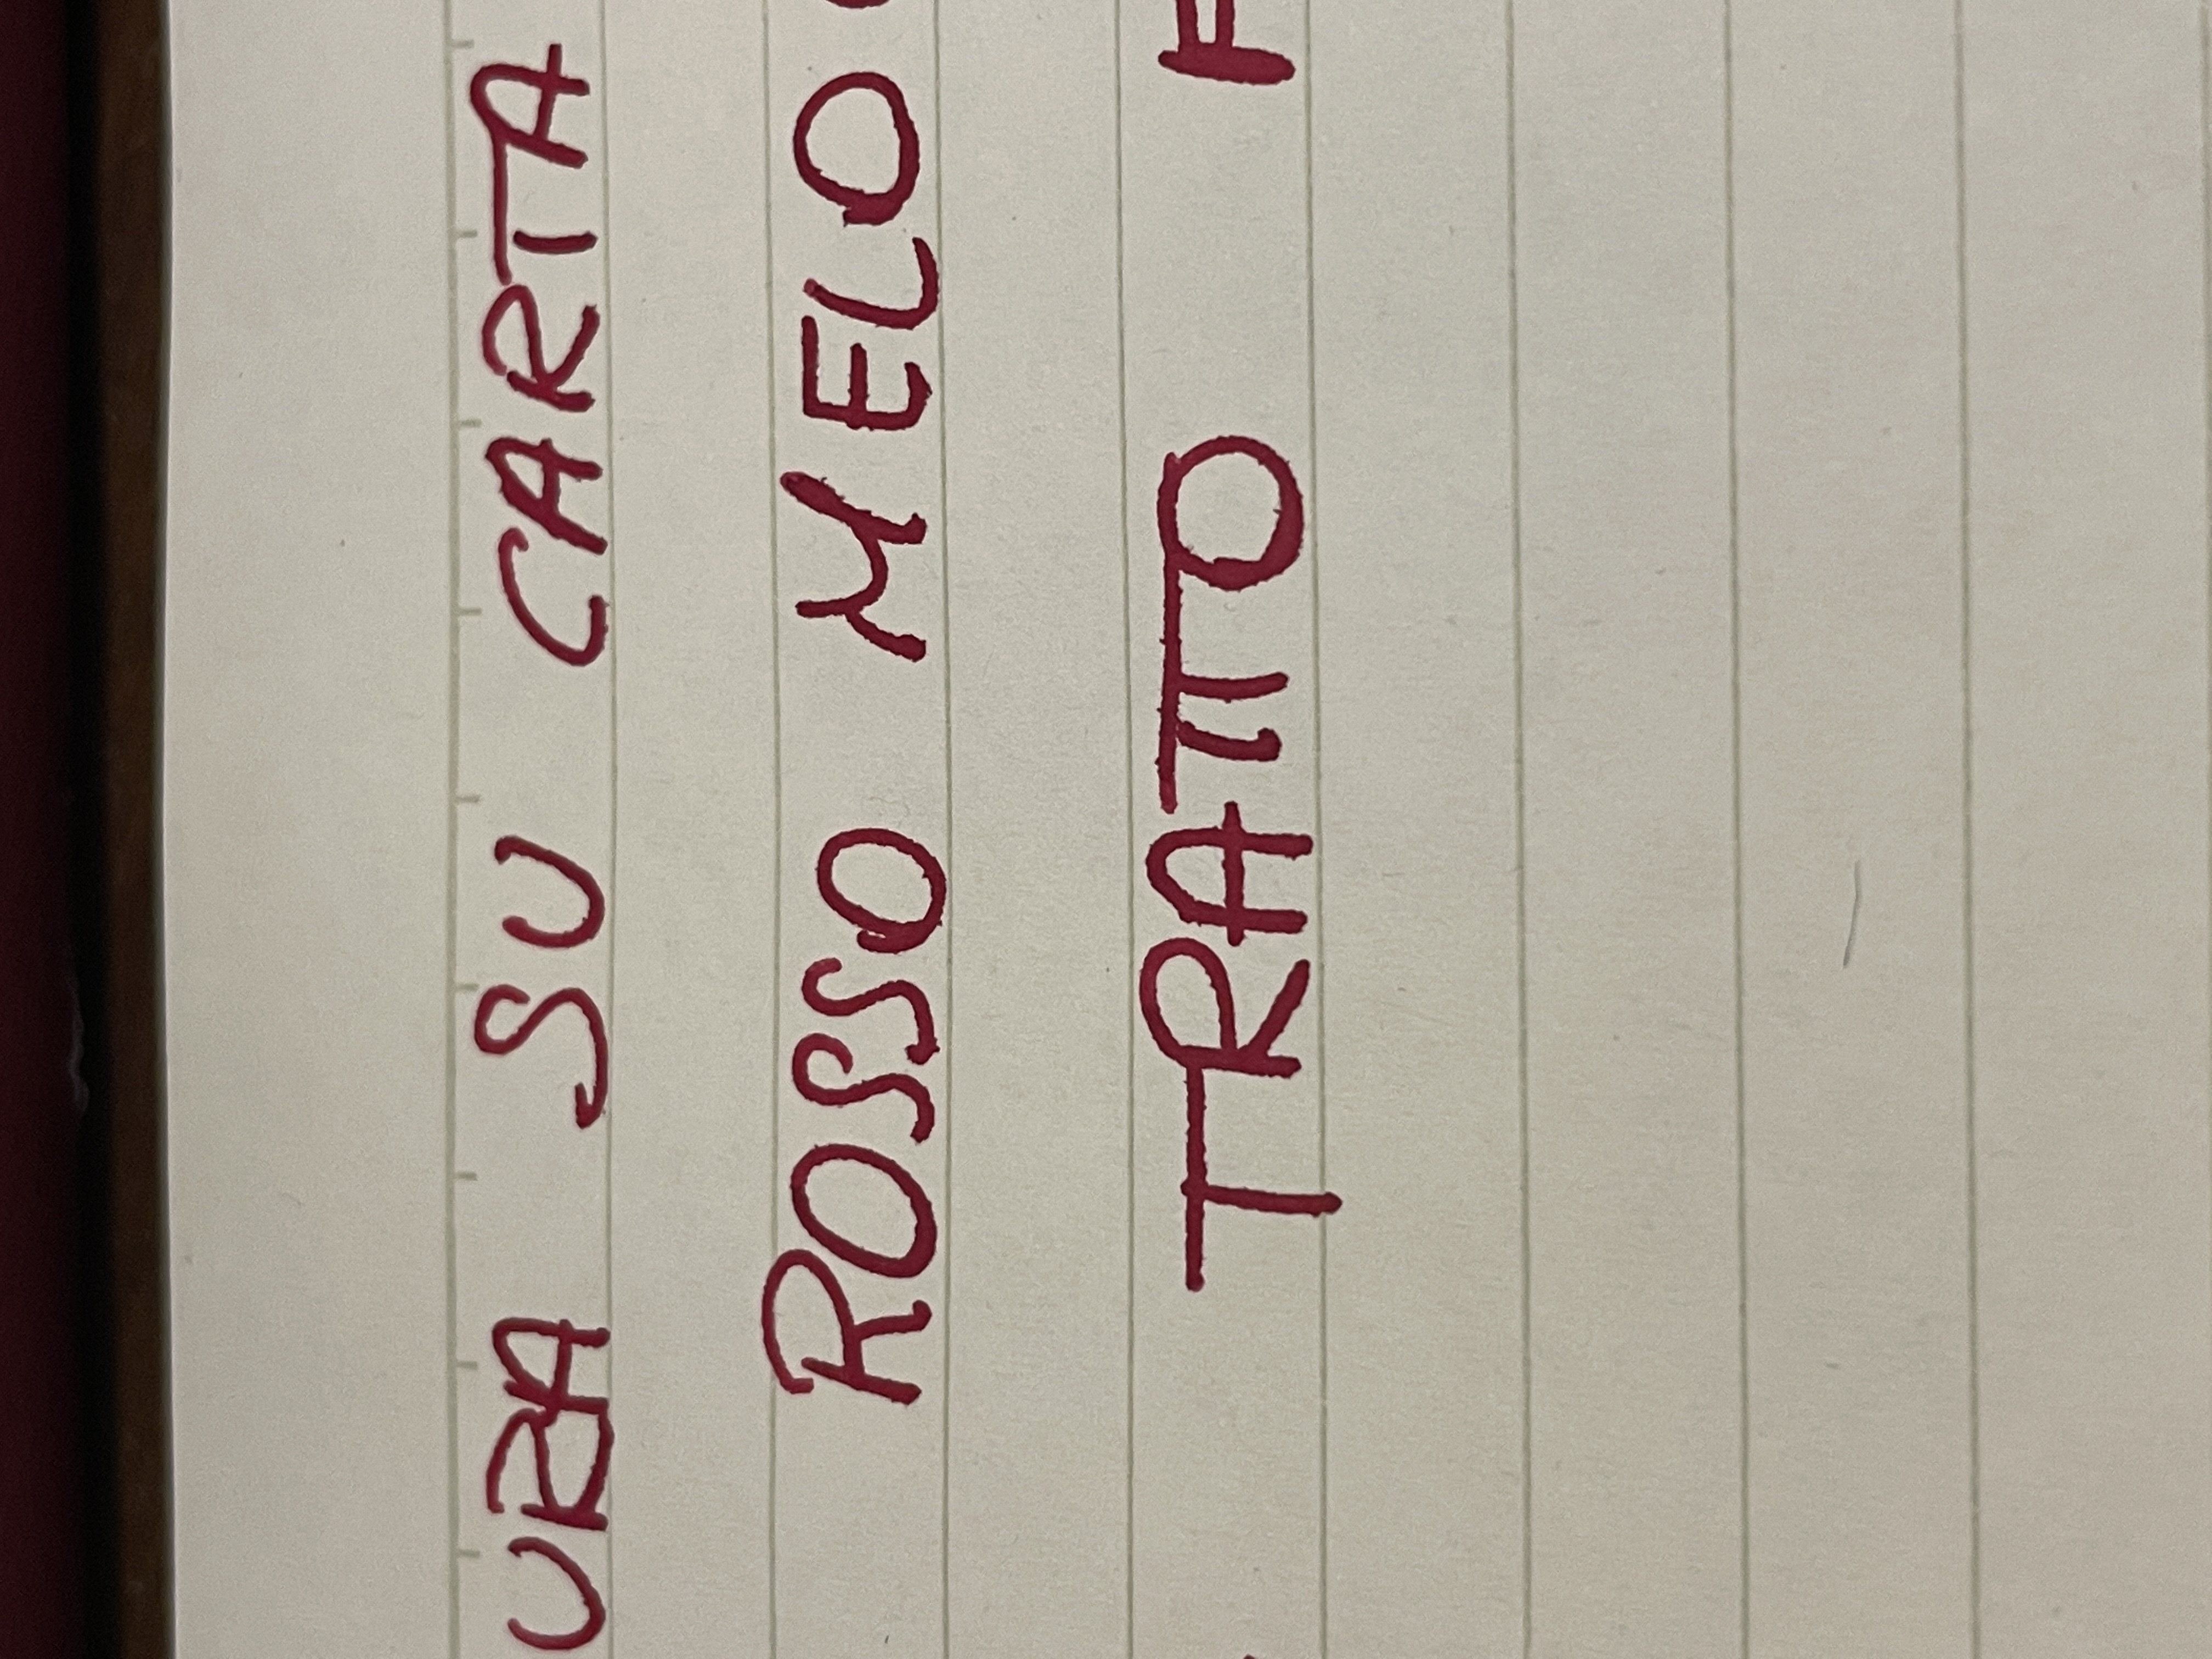 URA SU CARTA
ROSSO MELO
TRATTO